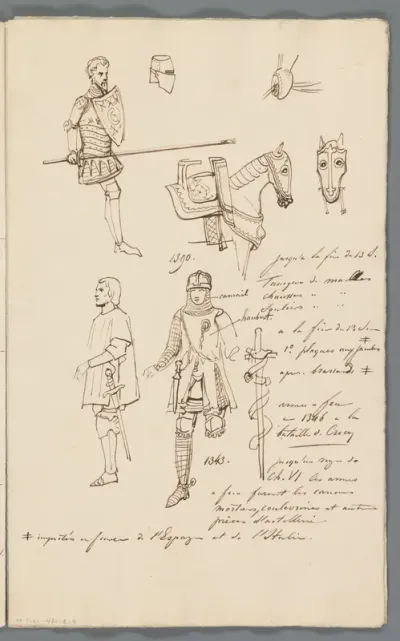 1390.
jusqu'à la fin du 13 S.
Tuniques de mailles
chausses " "
Souliers " "
camail
haubert
a la fin du 13 S
1º. plaques aux jambes
apr. brassards ⌗
armes a feu
en 1346 a la
bataille de Crecy
1343.
jusqu'au regne de
Ch. VI les armes
a feu furent les canons
mortiers, couleuvrines et autres
pièces d'artillerie
⌗ importés en france de l'Espagne et de l'Italie.